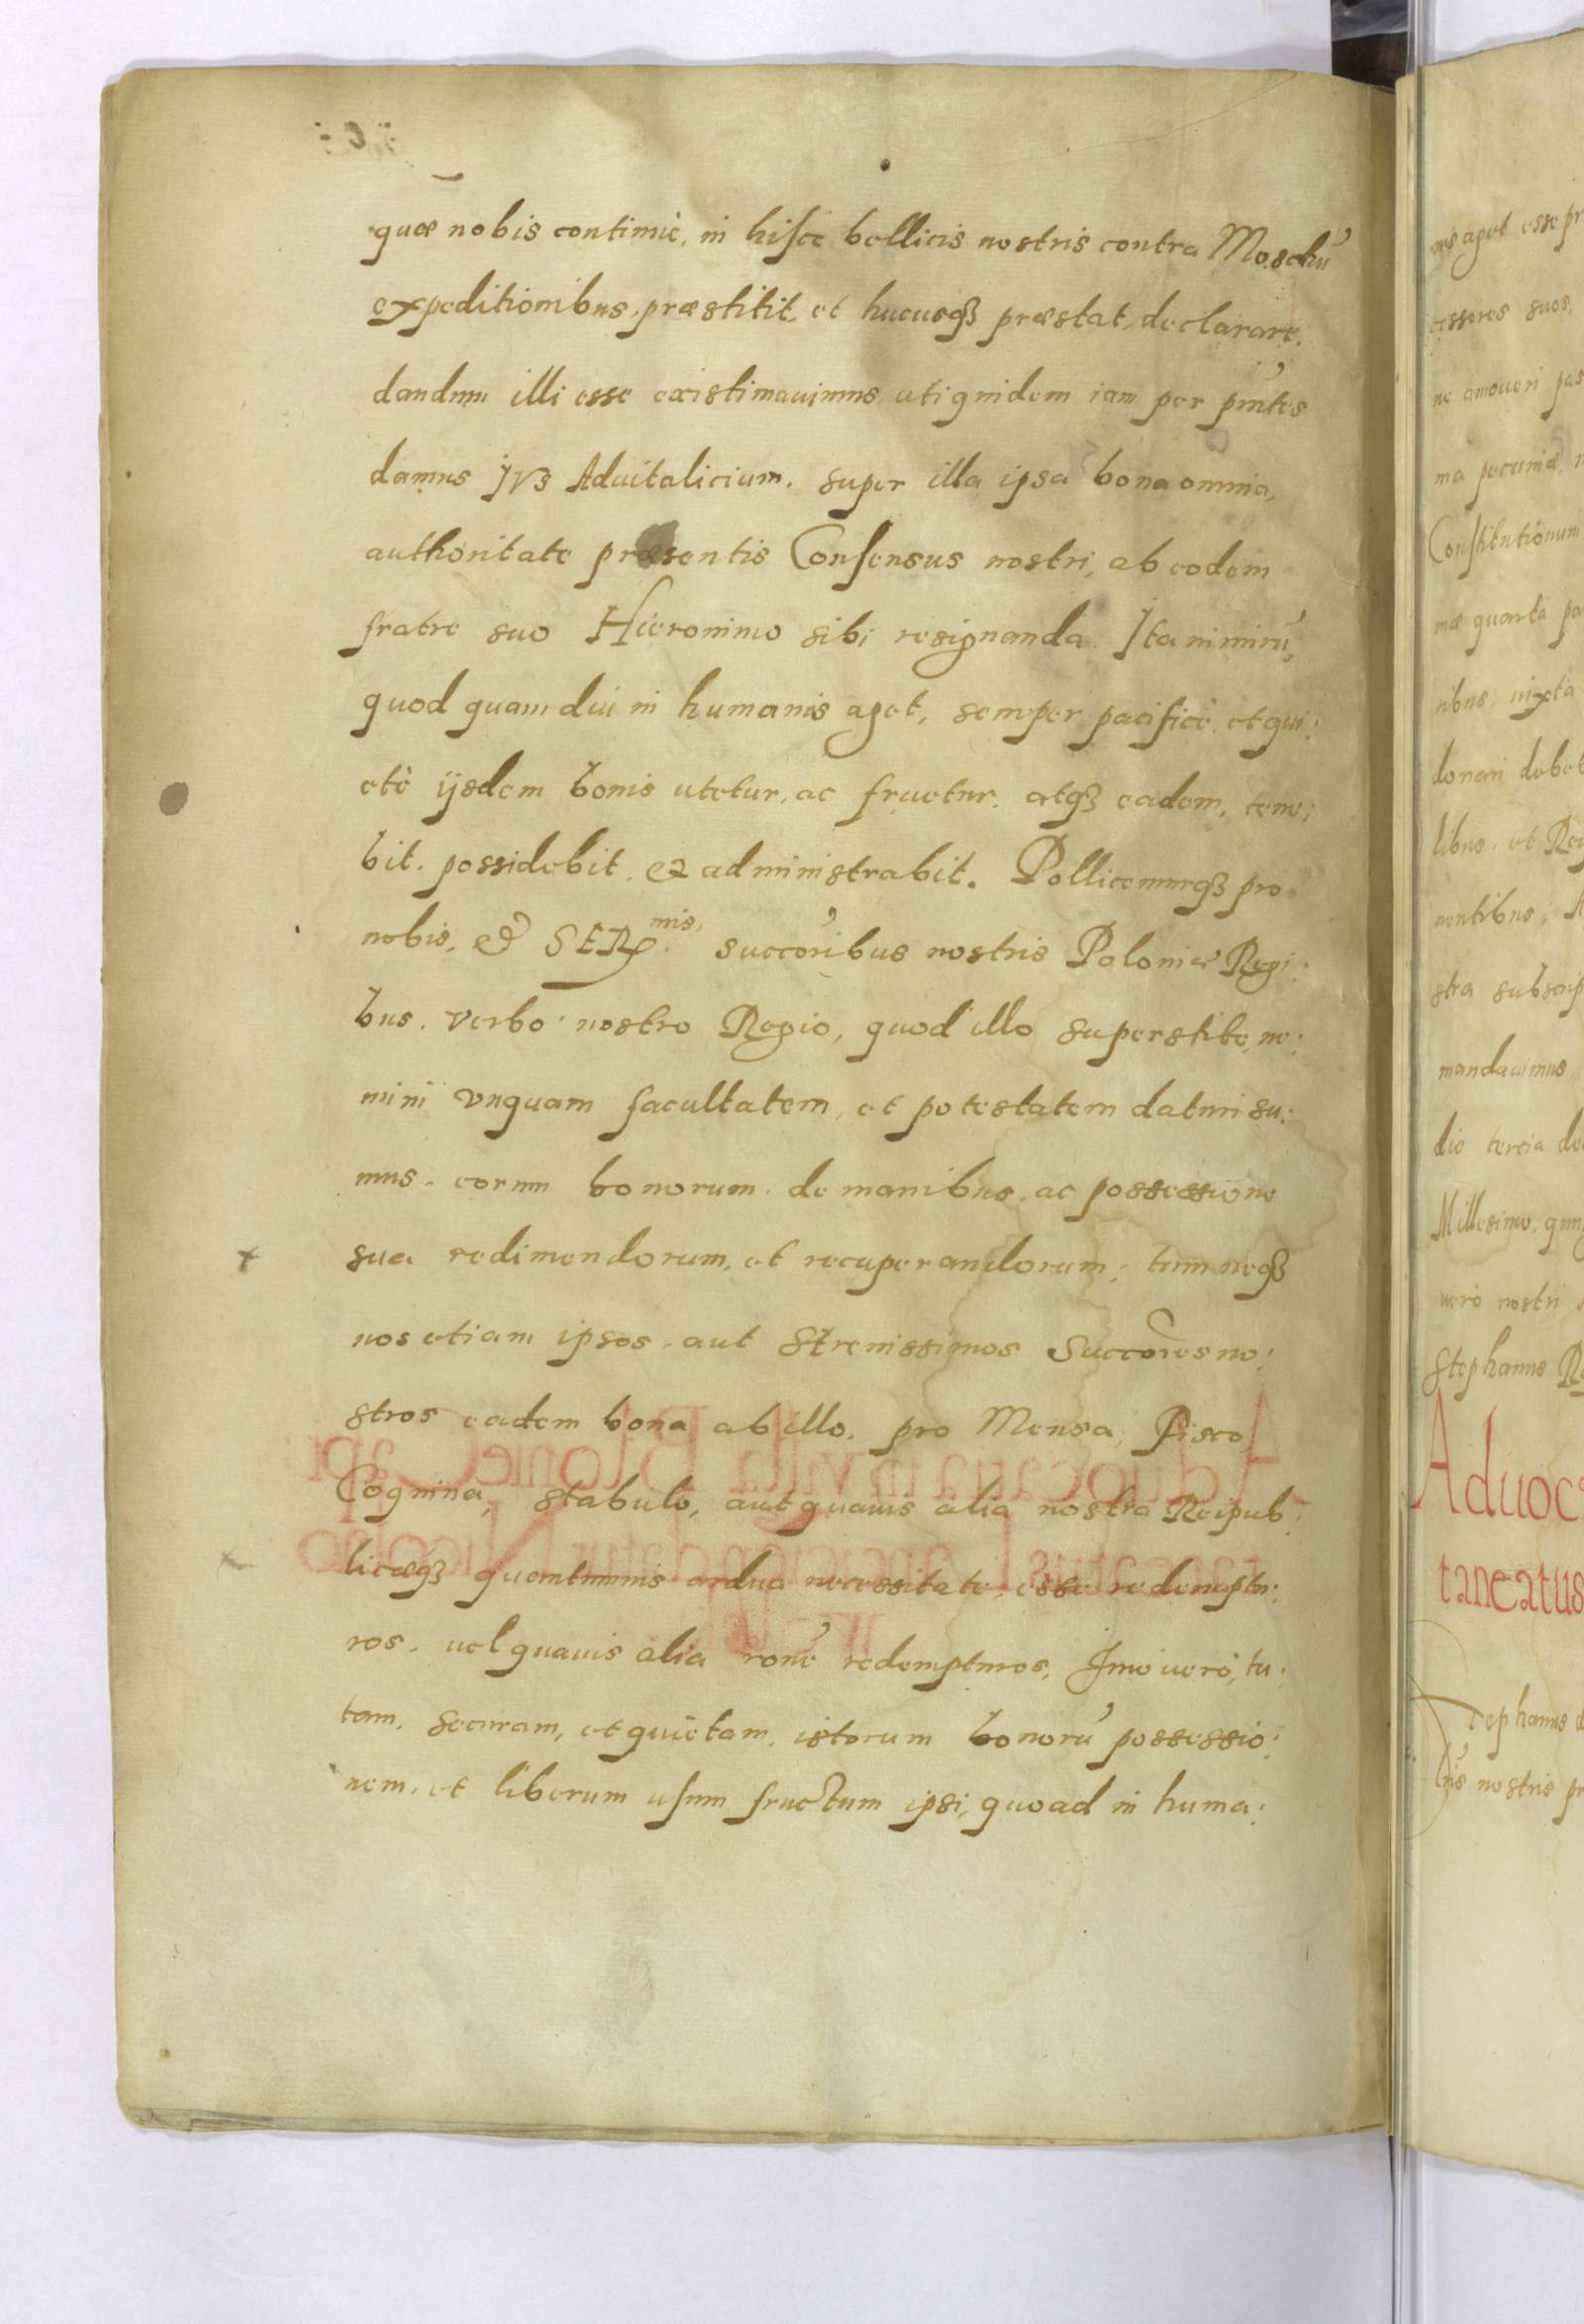 quæ nobis continuè, in hisce bellicis nostris contra Moschū
expeditionibus, præstitit, et hucusqȝ præstat, declarare.
dandum illi esse existimauimus, uti quidem iam per pn̄tes
damus JVS Aduitalicium. super illa ipsa bona omnia,
authoritate præsentis Consensus nostri, ab eodem
fratre suo Hieronimo sibi resignanda. Ita nimirū,
quod quam diu in humanis aget, semper pacificè, et qui:
etè ijsdem bonis utetur, ac fruetur, atqȝ eadem, tene:
bit. possidebit. et administrabit. Pollicemurqȝ pro
nobis, et SERmis. succōribus nostris Poloniæ Regi:
bus. verbo nostro Regio, quod illo superstite, ne:
mini vnquam facultatem, et potestatem daturi su:
mus. eorum bonorum. de manibus, ac possessione
sua redimendorum, et recuperandorum; tum neqȝ
nos etiam ipsos, aut Strenissimos Succōres no:
stros eadem bona ab illo. pro Mensa, Fisco
Coquina, stabulo, aut quauis alia nostra Reipub:
licæqȝ quantumuis ardua necessitate, esse redemptu:
ros. uel quauis alia rōne redempturos, Imo uerò, tu:
tam, securam, et quietam, istorum bonorū possessio:
nem, et liberum usum fructum ipsi, quoad in huma:
nis aget esse pr
cessores suos,
ne amoueri pos
ma pecuniæ,
Constitutionum
mæ quarta pa
nibus, iuxta
donari debet
libus. et Reg
mentibus. A
stra subscrip
mandauimus
die tercia de
Millesimo, quin
uerò nostri
Stephanus R
Aduoca
taneatus
Stephanus d
nostris pr